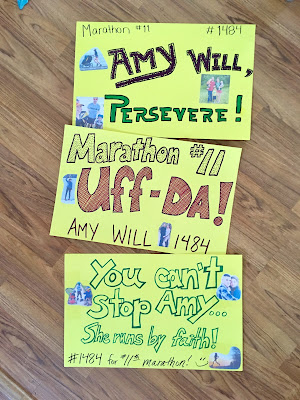 Marathon #11 #1484
AMY WILL,
PERSEVERE!
Marathon #11
UFF-DA!
AMY WILL 1484
You can't
Stop Amy...
She runs by faith!
#1484 for #11th marathon!